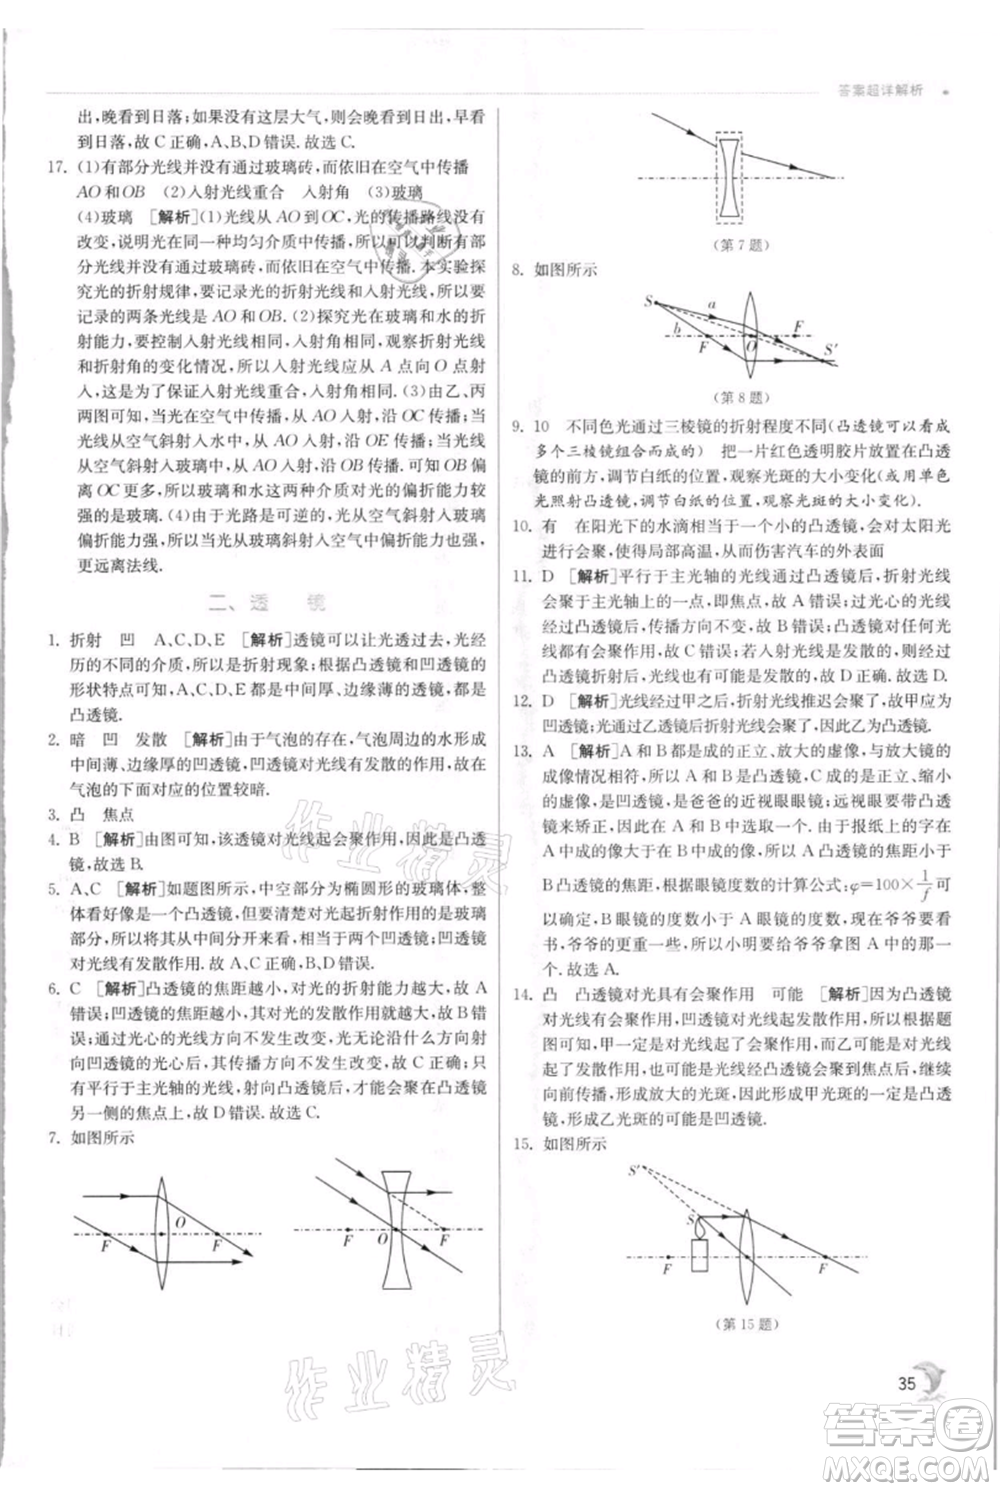 答案超详解析
日出,晚看到日落;如果没有这层大气,晚看到日出,早看到
日落,故 C 正确,A、B、D 错误.故选 C.
17. (1)有部分光线并没有通过玻璃砖,而依旧在空气中传播
AO 和 OB (2)入射光线重合 入射角 (3)玻璃
(4)玻璃 [解析](1)光线从 AO 到 OC,光的传播路线没有
改变,说明光是在同一均匀介质中传播,所以可以判断有部
分光没有通过玻璃砖,而是依旧在空气中传播.本实验探
究光的折射规律,要记录光的折射光线和入射光线,所以要
记录的两条光线是 AO 和 OB.(2)探究光在玻璃和水的折
射能力,要控制入射光线相同、入射角相同,观察折射光线
和折射角的变化情况,所以入射光线应从 A 点向 O 点射
入,这是为了保证入射光线重合,入射角相同.(3)由乙、丙
两图可知,当光在空气中传播,沿 AO 传播,沿 OC 传播;当
光线从空气斜射入水中,沿 AO 传播,沿 OE 传播;当光线
从空气斜射入玻璃中,沿 AO 传播,沿 OD 传播.可知,OD
比 OC 更多,所以玻璃和水中的对光的偏折能力最强
的是玻璃.(4)由于光路是可逆的,所以玻璃对光线向空气
偏折能力强,所以光从玻璃斜射入空气中的折射光线,
更远离法线.
二、透 镜
1. 折射 凹 A、C、D、E [解析]透镜可以让光透过去,光经
历的不同的介质,所以是折射现象;根据凸透镜和凹透镜的
形状特点可知,A、C、D、E都是中间厚、边缘薄的透镜,都是
凸透镜.
2. 暗 凹 发散 [解析]由于气泡的存在,气泡周边的水形成
中间薄、边缘厚的凹透镜,对光线有发散的作用,所以故在
气泡的下面对应的位置较暗.
3. 凸 焦点
4. B [解析]由图可知,该透镜对光线起会聚作用,是凸透
镜,故选 B.
5. A、C [解析]如题图所示,中空部分为椭圆形的玻璃砖,整
体看好像是一个凸透镜,但要清楚对光起折射作用的是玻璃
部分,所以将其从中间分开来看,好像两个凹透镜,凹透镜
对光线有发散作用.故 A、C 正确,B、D 错误.
6. C [解析]凸透镜的焦距越小,光的折射能力越大,故 A 错
误;凹透镜的焦距越小,其对光的发散作用越明显,故 B 错
误;通过光心的光线方向不发生改变,光无论沿什么方向射
向凹透镜的光心,其传播方向不发生改变,故 C 正确;
只有平行于主光轴的光线,射向凸透镜后,才能会聚在透镜
另一侧的焦点上,故 D 错误.故选 C.
7. 如图所示
F
O
F
F
O
F
(第 7 题)
8. 如图所示
S
a
b
F
O
F
S′
(第 8 题)
9. 10 不同色光通过三棱镜的折射程度不同(凸透镜可以看成
多个三棱镜组合而成的) 把一片红色透明胶片放置在凸透
镜的前方,调节白纸的位置,观察光斑的大小变化(或用单色
光照射凸透镜,调节白纸的位置,观察光斑的大小变化).
10. 有 在阳光下的水滴相当于一个小的凸透镜,会对太阳光
进行会聚,使得局部高温,从而伤害汽车的外表面
11. D [解析]平行于主光轴的光线通过凸透镜后,折射光线
会聚于主光轴的一点,即焦点,故 A 错误;过光心的光线经
凸透镜后,传播方向不变,故 B 错误;凸透镜对任何光
线都有会聚作用,故 C 错误;若入射光线是发散的,凸透镜
后仍可能是发散的,故 D 正确.
12. D [解析]光线经过甲之后,折射光线推迟会聚了,故甲应为
凹透镜;光通过乙透镜后折射光线会聚了,因此乙为凸透镜.
13. A [解析]A 和 B 都是成的正立、放大的虚像,与放大镜的
成像情况相符,所以 A 和 B 是凸透镜,C 成的是正立、缩小
的虚像,是凹透镜,是爸爸的近视眼用眼镜.远视眼用凸透
镜来矫正,所以在 A 和 B 中选取一个.由于报纸上的字在
A 中成的像大于在 B 中成的像,所以 A 凸透镜的焦距小于
B 凸透镜的焦距,根据眼镜度数的计算公式:φ=100×1/f可
以确定,B 眼镜的度数小于 A 眼镜的度数,故在爷爷要看
书,爷爷的更重一些,所以小明要给爷爷拿图 A 中的老花
镜.故选 A.
14. 凸 凸透镜对光具有会聚作用 可能 [解析]因为凸透镜
对光线有会聚作用,凹透镜对光线起发散作用,所以根据题
图可知,甲一定是对光线起了会聚作用,而乙可能是对光线
起发散作用,也可能是光线经凸透镜会聚,过焦点之后,继续
向前传播,形成放大的光斑,所以形成甲光斑的一定是凸透
镜,形成乙光斑的可能是凹透镜,也可能是凸透镜.
15. 如图所示
S′
S
F
F
(第 15 题)
35
作业精灵
作业精灵
答案卷
MXQE.COM